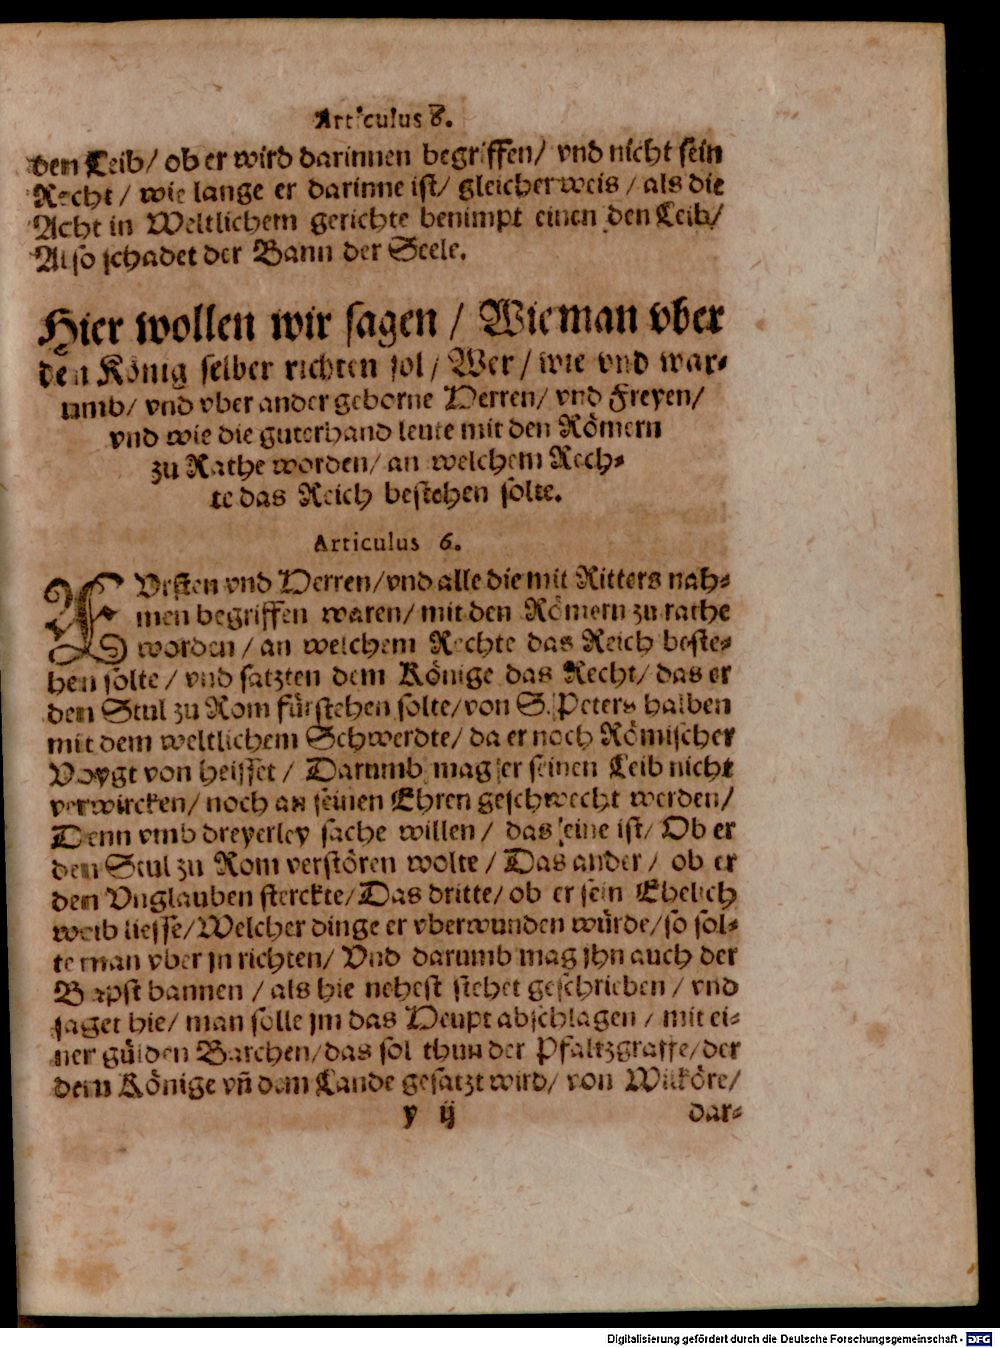 Articulus 8.
den Leib/ ob er wird darinnen begriffen/ vnd nicht sein
Recht/ wie lange er darinne ist/ gleicherweis/ als die
Acht in Weltlichem gerichte benimpt einen den Leib/
Also schadet der Bann der Seele.
Hier wollen wir sagen / Wie man vber
den König selber richten sol/ Wer/ wie vnd war-
umb/ vnd vber ander geborne Herren/ vnd Freyen/
vnd wie die guterhand leute mit den Römern
zu Rathe worden/ an welchem Rech-
te das Reich bestehen solte.
Articulus 6.
FVrsten vnd Herren/vnd alle die mit Ritters nah-
men begriffen waren/ mit den Römern zu rathe
worden/ an welchem Rechte das Reich beste-
hen solte/ vnd satzten dem Könige das Recht/ das er
den Stul zu Rom fürstehen solte/von S. Peters halben
mit dem weltlichem Schwerdte/ da er noch Römischer
Voygt von heisset / Darumb mag er seinen Leib nicht
verwircken/ noch an seinen Ehren geschwecht werden/
Denn vmb dreyerley sache willen/ das eine ist/ Ob er
den Stul zu Rom verstören wolte/ Das ander/ ob er
den Vnglauben sterckte/Das dritte/ob er sein Ehelich
weib liesse/Welcher dinge er vberwunden würde/so sol-
te man vber jn richten/ Vnd darumb mag jhn auch der
Bapst bannen / als hie nehest stehet geschrieben / vnd
saget hie/ man solle jm das Heupt abschlagen / mit ei-
ner gülden Barthen/das sol thun der Pfaltzgraffe/der
dem Könige vñ dem Lande gesatzt wird/ von Wilköre/
y ij dar-
Digitalisierung gefördert durch die Deutsche Forschungsgemeinschaft - DFG